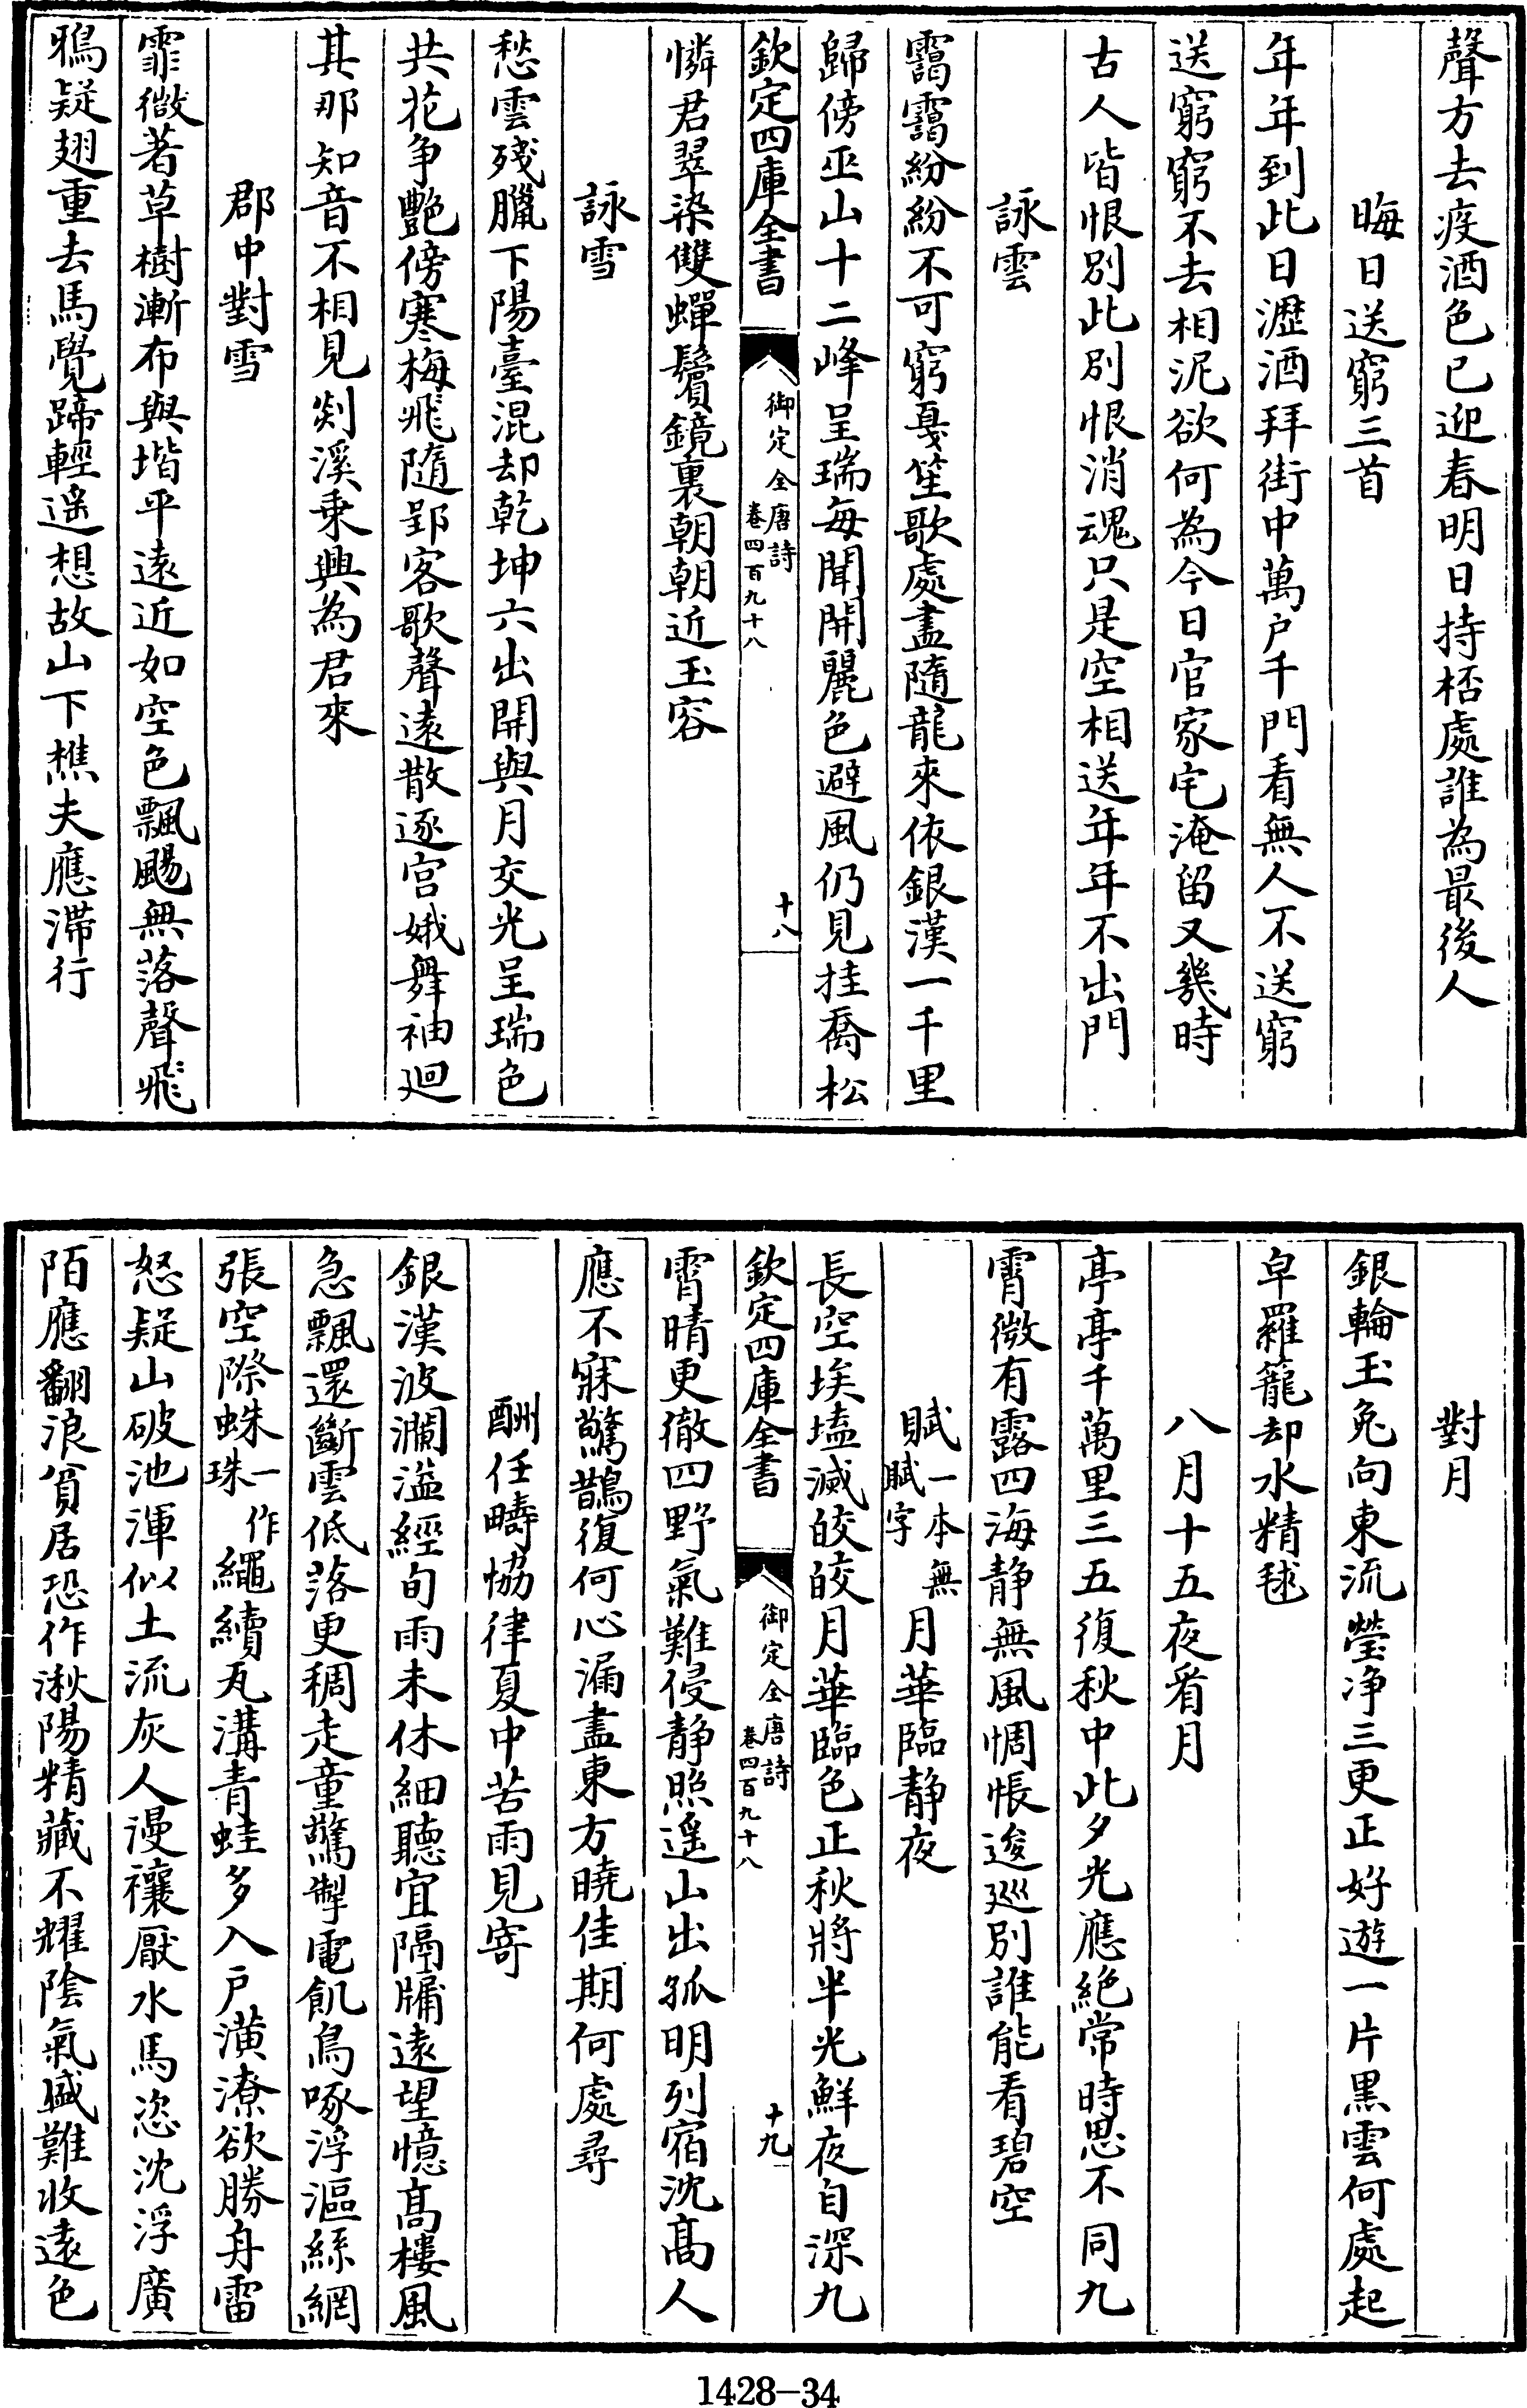 聲方去疫酒色已迎春明日持桮處誰為最後人
晦日送窮三首
年年到此日瀝酒拜街中萬户千門看無人不送窮
送窮窮不去相泥欲何為今日官家宅淹留又幾時
古人皆恨別此別恨消魂只是空相送年年不出門
詠雲
靄靄紛紛不可窮戞笙歌處盡隨龍來依銀漢一千里
歸傍巫山十二峰呈瑞每聞開麗色避風仍見挂喬松
欽定四庫全書
御定全唐詩
卷四百九十八
十八
憐君翠染雙蟬鬢鏡裏朝朝近玉容
詠雪
愁雲殘臘下陽臺混却乾坤六出開與月交光呈瑞色
共花争艷傍寒梅飛隨郢客歌聲遠散逐宫娥舞袖迴
其那知音不相見剡溪乗興為君來
郡中對雪
霏微著草樹漸布與堦平遠近如空色飄颺無落聲飛
鵶疑翅重去馬覺蹄輕遥想故山下樵夫應滯行
對月
銀輪玉兔向東流瑩净三更正好遊一片黒雲何處起
皁羅籠却水精毬
八月十五夜㸔月
亭亭千萬里三五復秋中此夕光應絶常時思不同九
霄微有露四海静無風惆悵逡巡別誰能看碧空
賦一本無賦字月華臨静夜
長空埃壒滅皎皎月華臨色正秋將半光鮮夜自深九
欽定四庫全書
御定全唐詩
卷四百九十八
十九
霄晴更徹四野氣難侵静照遥山出孤明列宿沈髙人
應不寐驚鵲復何心漏盡東方曉佳期何處尋
酬任疇協律夏中苦雨見寄
銀漢波瀾溢經旬雨未休細聽宜隔牗遠望憶髙樓風
急飄還斷雲低落更稠走童驚掣電飢鳥啄浮漚絲網
張空際蛛一作珠繩續瓦溝青蛙多入户潢潦欲勝舟雷
怒疑山破池渾似土流灰人漫禳厭水馬恣沈浮廣
陌應翻浪貧居恐作湫陽精藏不耀陰氣盛難收遠色
1428-34